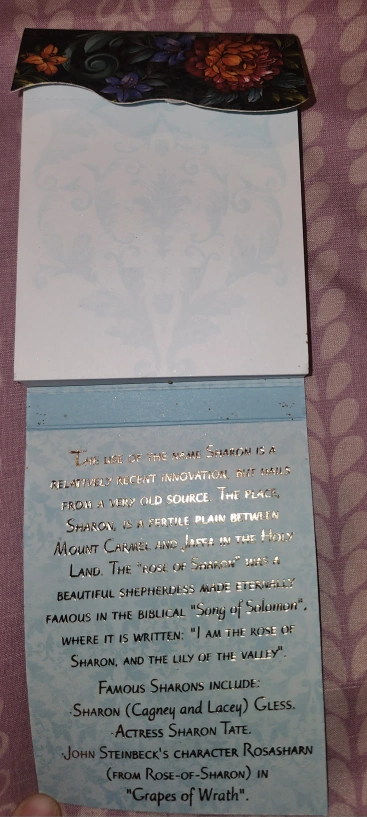 The use of the name Sharon is a
relatively recent innovation, but hails
from a very old source. The place,
Sharon, is a fertile plain between
Mount Carmel and Jaffa in the Holy
Land. The "rose of Sharon" was a
beautiful shepherdess made eternally
famous in the biblical "Song of Solomon",
where it is written: "I am the rose of
Sharon, and the lily of the valley".
Famous Sharons include:
·Sharon (Cagney and Lacey) Gless.
·Actress Sharon Tate.
·John Steinbeck's character Rosasharn
(from Rose-of-Sharon) in
"Grapes of Wrath".